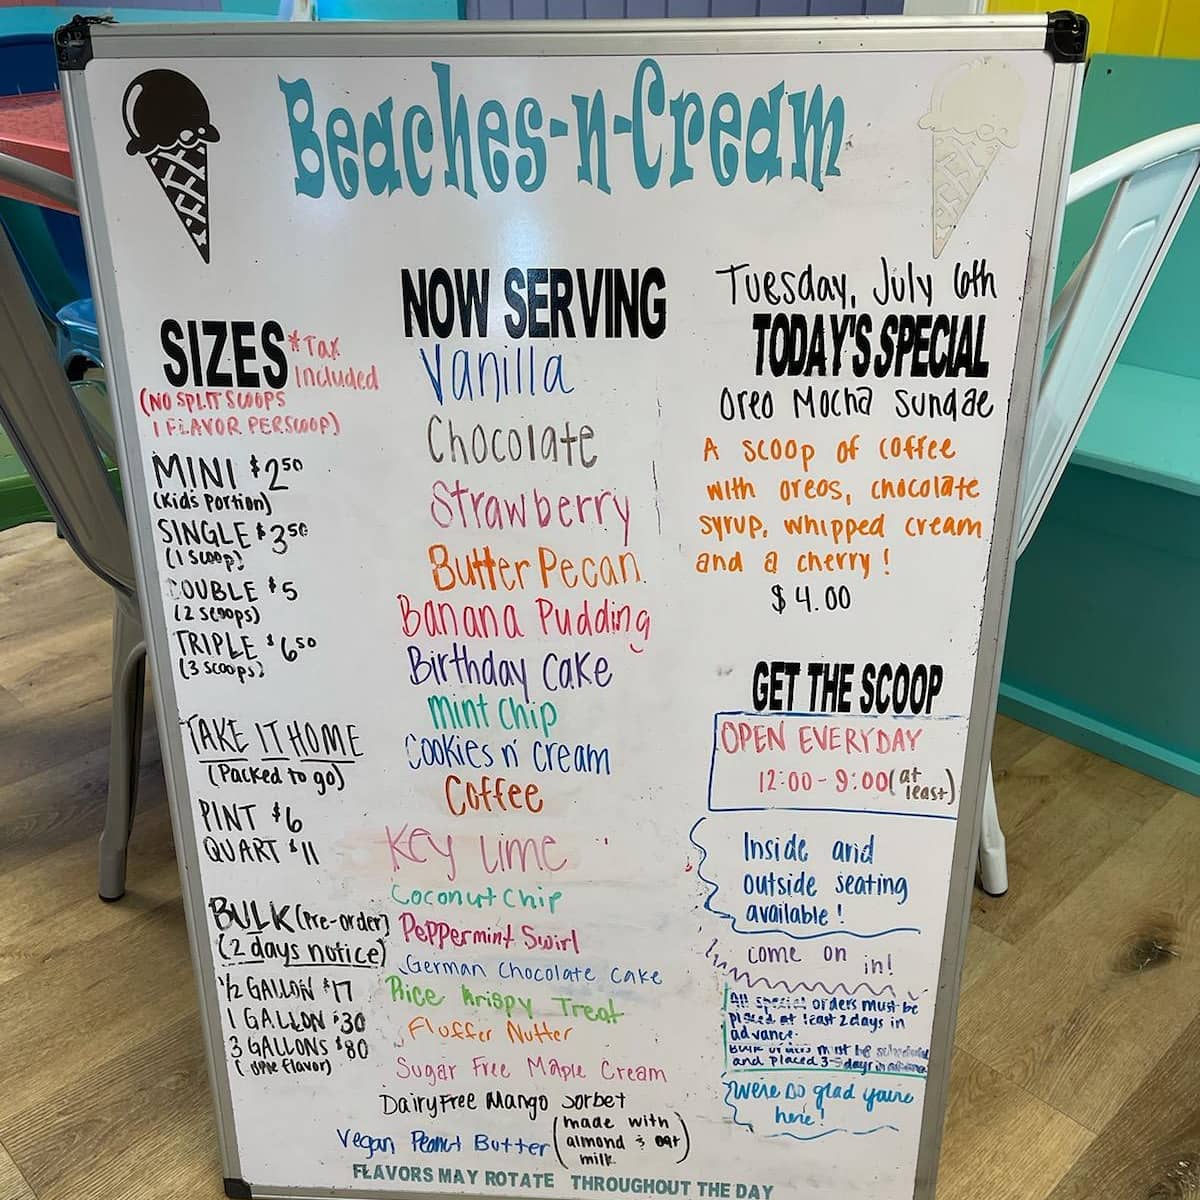 Beaches-n-Cream
SIZES *Tax
Included
(NO SPLIT SCOOPS
1 FLAVOR PER SCOOP)
MINI $2.50
(Kid's Portion)
SINGLE $3.50
(1 SCOOP)
DOUBLE $5
(2 SCOOPS)
TRIPLE $6.50
(3 SCOOPS)
TAKE IT HOME
(Packed to go)
PINT $6
QUART $11
BULK (Pre-order)
(2 days notice)
1/2 GALLON $17
1 GALLON $30
3 GALLONS $80
(one flavor)
NOW SERVING
Vanilla
Chocolate
Strawberry
Butter Pecan
Banana Pudding
Birthday Cake
Mint Chip
Cookies n' Cream
Coffee
Key Lime
Coconut Chip
Peppermint Swirl
German Chocolate Cake
Rice Krispy Treat
Fluffer Nutter
Sugar Free Maple Cream
Dairy Free Mango Sorbet
Vegan Peanut Butter (made with
almond & oat
milk)
Tuesday, July 6th
TODAY'S SPECIAL
Oreo Mocha Sundae
A scoop of coffee
with oreos, chocolate
syrup, whipped cream
and a cherry!
$4.00
GET THE SCOOP
OPEN EVERYDAY
12:00 - 9:00 (at
least)
Inside and
outside seating
available!
come on in!
All special orders must be
placed at least 2 days in
advance.
Bulk orders must be
and placed days in
We're so glad you're
here!
FLAVORS MAY ROTATE THROUGHOUT THE DAY